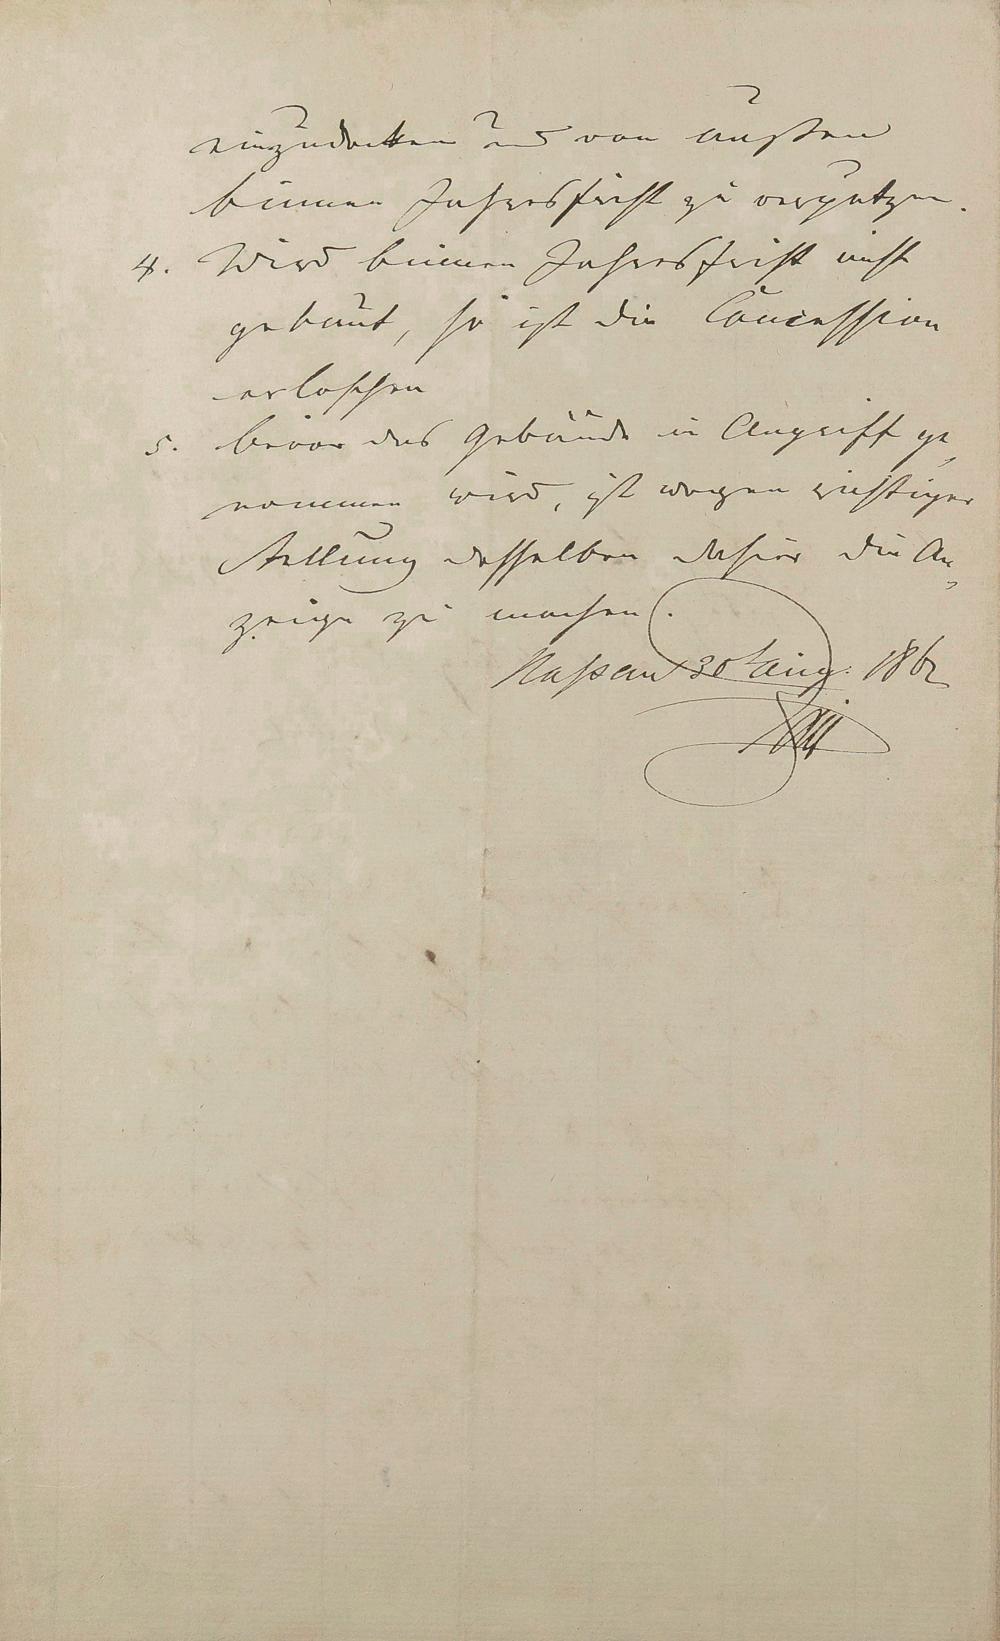 einzudecken und von außen
binnen Jahresfrist zu verputzen.
4. Wird binnen Jahresfrist nicht
gebaut, so ist die Concession
erloschen
5. bevor das Gebäude in Angriff ge„
nommen wird, ist wegen richtiger
Stellung desselben dahier die An„
zeige zu machen.
Nassau 30t Aug: 1862